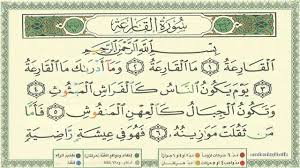 سُورَةُ القَارِعَةِ
بِسْمِ اللَّهِ الرَّحْمَٰنِ الرَّحِيمِ
الْقَارِعَةُ ١ مَا الْقَارِعَةُ ٢ وَمَا أَدْرَاكَ مَا الْقَارِعَةُ
٣ يَوْمَ يَكُونُ النَّاسُ كَالْفَرَاشِ الْمَبْثُوثِ ٤
وَتَكُونُ الْجِبَالُ كَالْعِهْنِ الْمَنفُوشِ ٥ فَأَمَّا
مَن ثَقُلَتْ مَوَازِينُهُ ٦ فَهُوَ فِي عِيشَةٍ رَّاضِيَةٍ